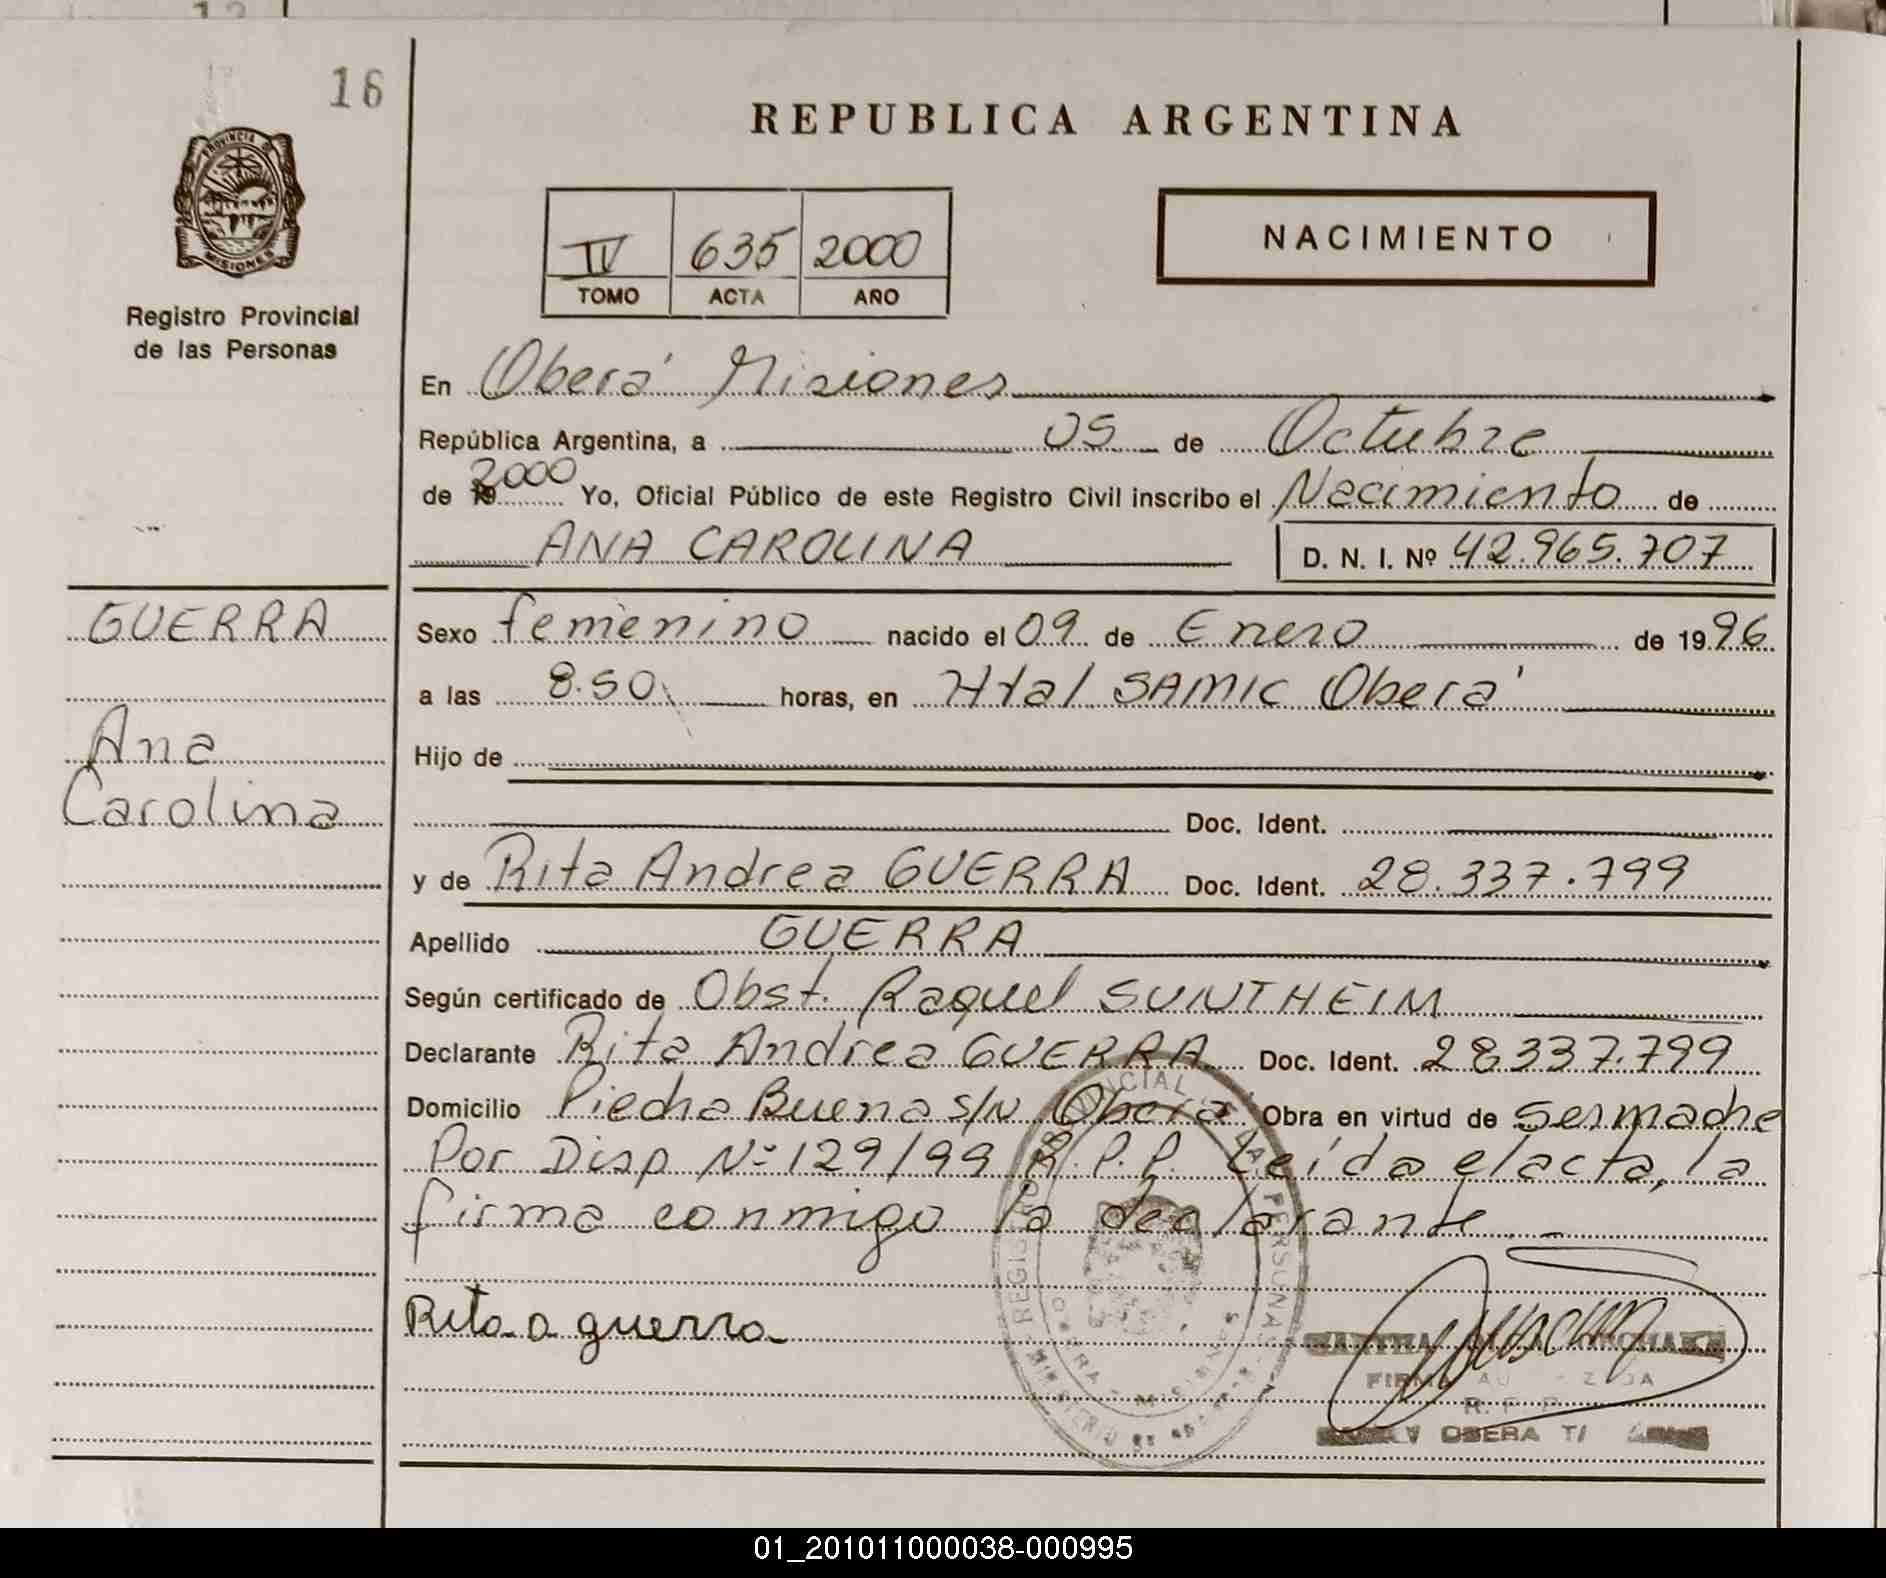 16
REPUBLICA ARGENTINA
PROVINCIA DE
MISIONES
Registro Provincial
de las Personas
IV 635 2000
TOMO ACTA AÑO
NACIMIENTO
En Oberá Misiones
República Argentina, a 05 de Octubre
de 19 2000 Yo, Oficial Público de este Registro Civil inscribo el Nacimiento de
ANA CAROLINA D. N. I. Nº 42.965.707
GUERRA
Ana
Carolina
Sexo femenino nacido el 09 de Enero de 1996
a las 8.50 horas, en Htal SAMIC Oberá
Hijo de
Doc. Ident.
y de Rita Andrea GUERRA Doc. Ident. 28.337.799
Apellido GUERRA
Según certificado de Obst. Raquel SUNTHEIM
Declarante Rita Andrea GUERRA Doc. Ident. 28.337.799
Domicilio Piedra Buena s/N Oberá Obra en virtud de ser madre
Por Disp Nº 129/99 R.P.P. Leída el acta, la
firma conmigo la declarante
Rita a guerra
FIRMA
R. P. P.
OBERA
01_201011000038-000995